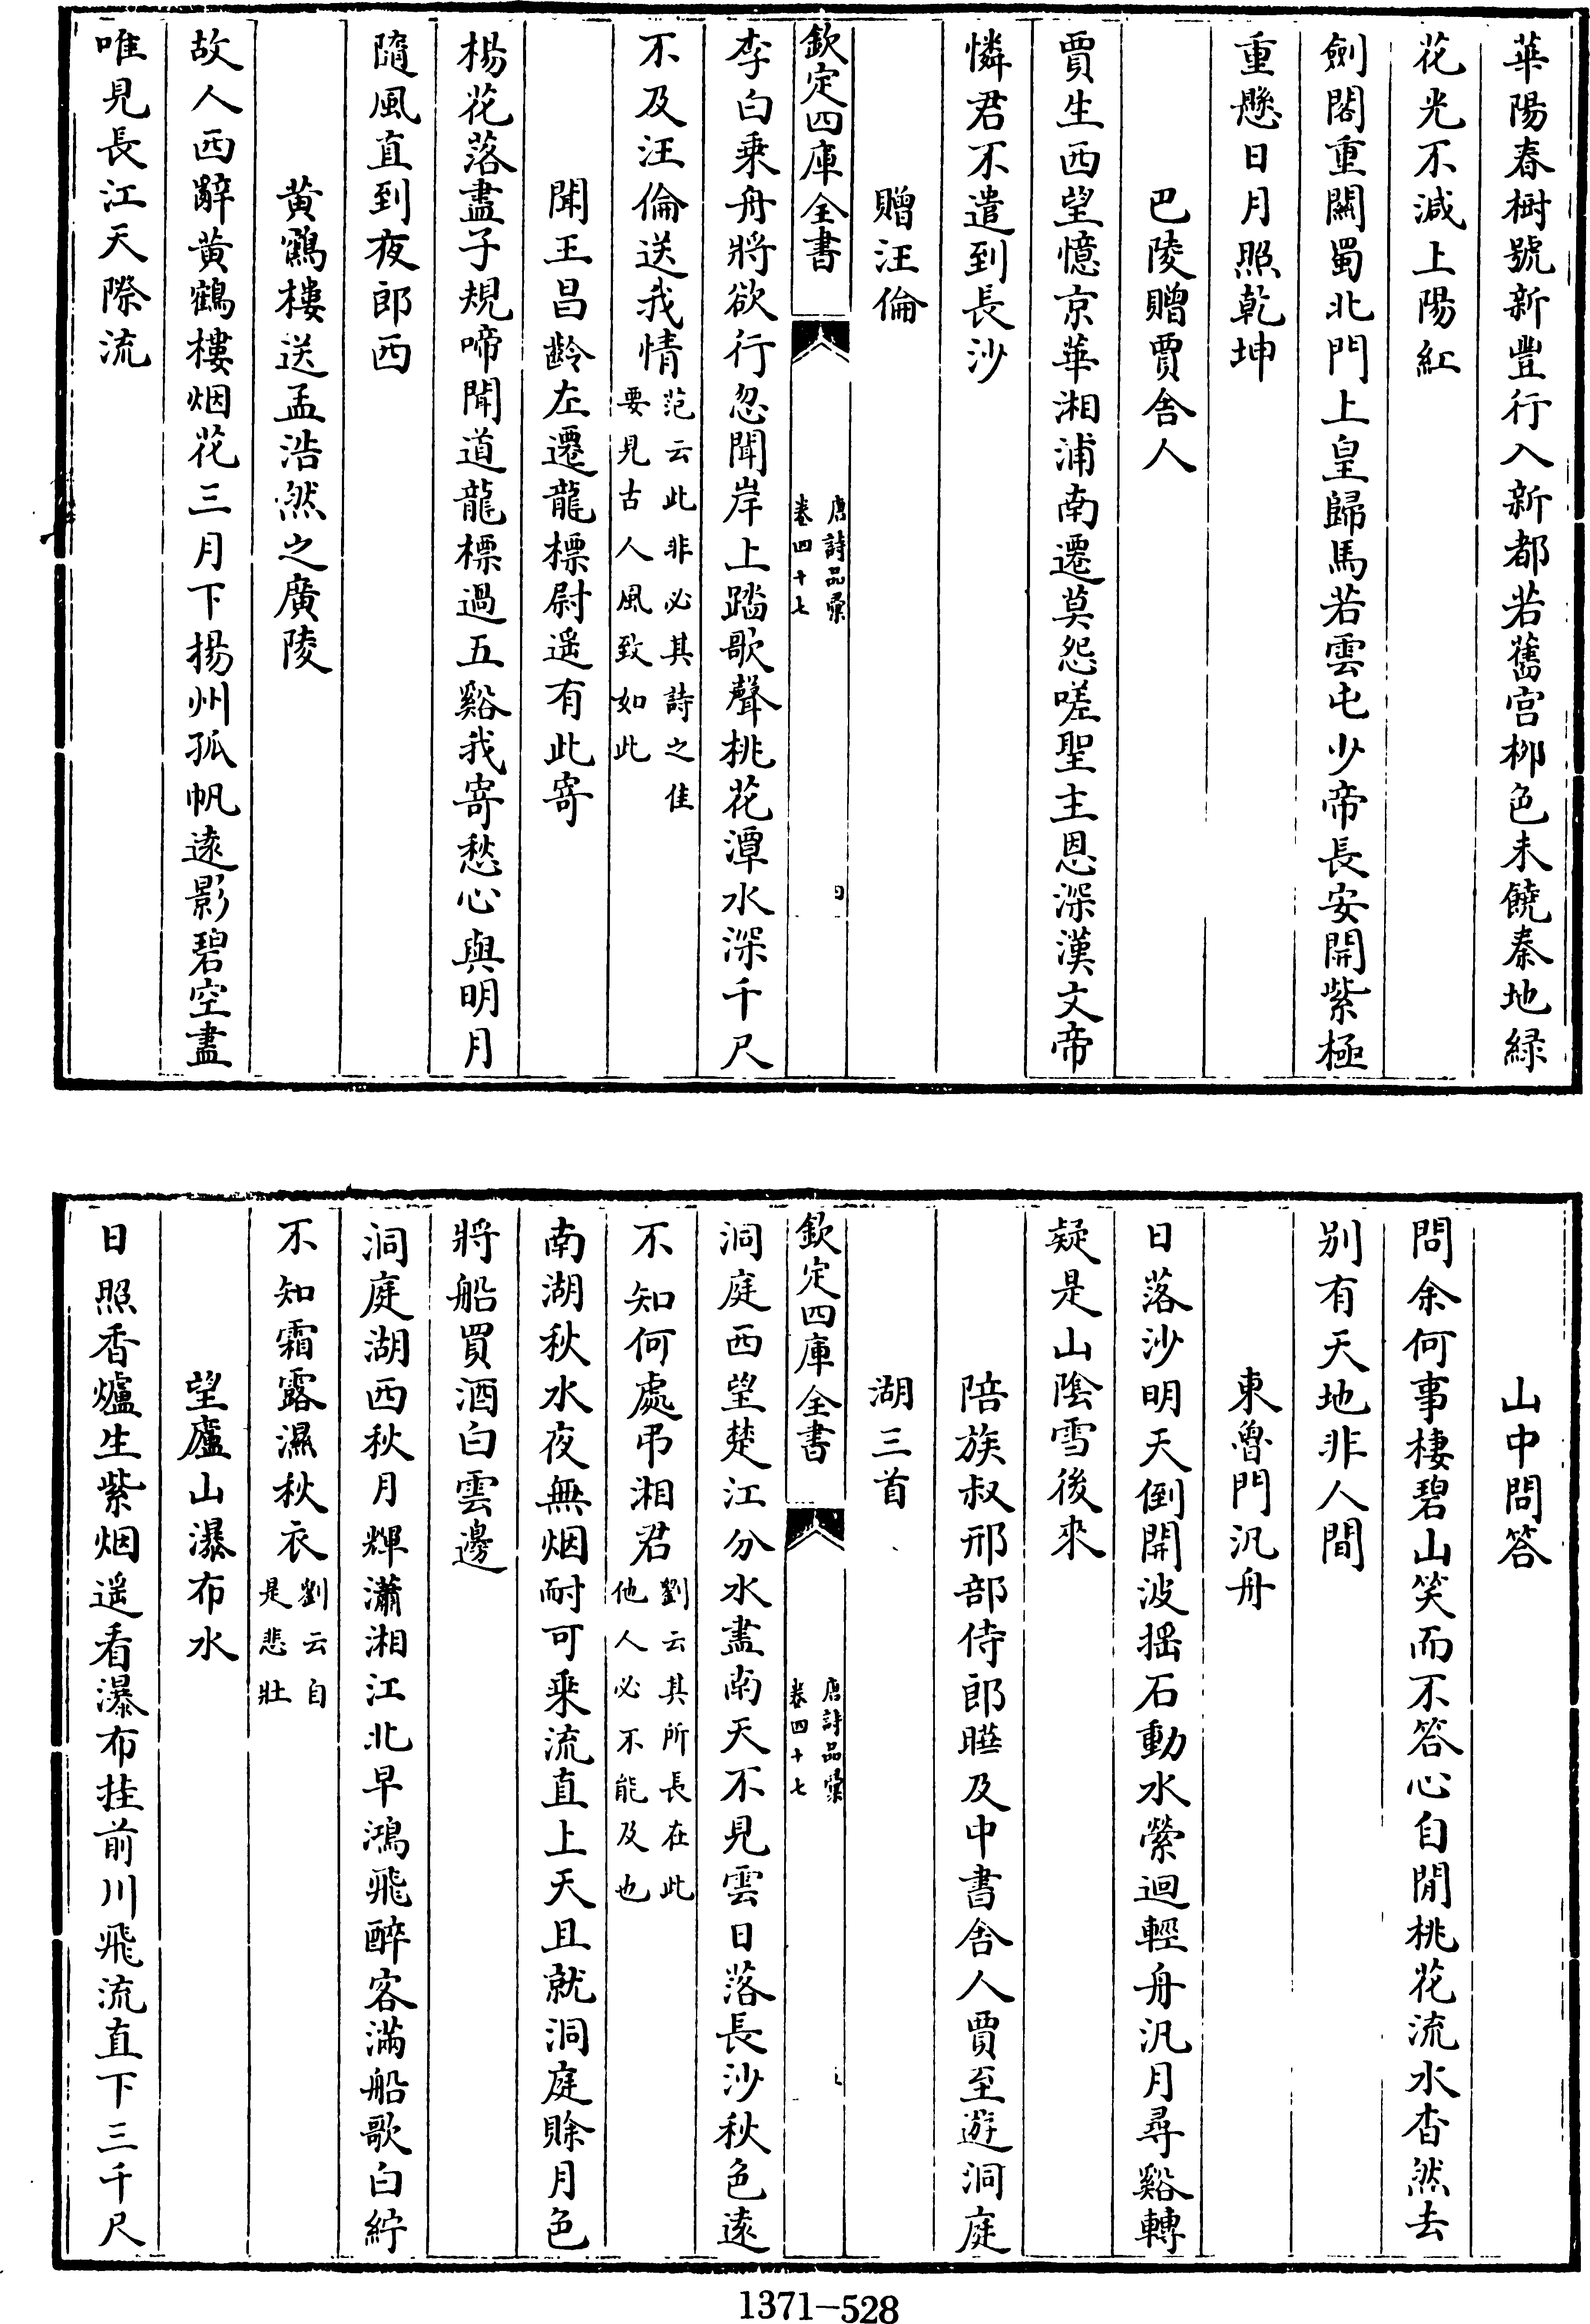 華陽春樹號新豐行入新都若舊宫栁色未饒秦地緑
花光不減上陽紅
劍閣重關蜀北門上皇歸馬若雲屯少帝長安開紫極
重懸日月照乾坤
巴陵贈賈舍人
賈生西望憶京華湘浦南遷莫怨嗟聖主恩深漢文帝
憐君不遣到長沙
贈汪倫
欽定四庫全書
唐詩品彚
卷四十七
四
李白乗舟將欲行忽聞岸上踏歌聲桃花潭水深千尺
不及汪倫送我情
范云此非必其詩之佳
要見古人風致如此
聞王昌齡左遷龍標尉遥有此寄
楊花落盡子規啼聞道龍標過五谿我寄愁心與明月
隨風直到夜郎西
黄鶴樓送孟浩然之廣陵
故人西辭黄鶴樓烟花三月下揚州孤帆逺影碧空盡
唯見長江天際流
山中問答
問余何事棲碧山笑而不答心自閒桃花流水杳然去
别有天地非人間
東魯門汎舟
日落沙明天倒開波摇石動水縈迴輕舟汎月尋谿轉
疑是山隂雪後來
陪族叔邢部侍郎曄及中書舍人賈至遊洞庭
湖三首
欽定四庫全書
唐詩品彚
卷四十七
洞庭西望楚江分水盡南天不見雲日落長沙秋色逺
不知何處弔湘君
劉云其所長在此
他人必不能及也
南湖秋水夜無烟耐可乗流直上天且就洞庭賒月色
將船買酒白雲邊
洞庭湖西秋月輝瀟湘江北早鴻飛醉客滿船歌白紵
不知霜露濕秋衣
劉云自
是悲壯
望廬山瀑布水
日照香爐生紫烟遥看瀑布挂前川飛流直下三千尺
1371—528